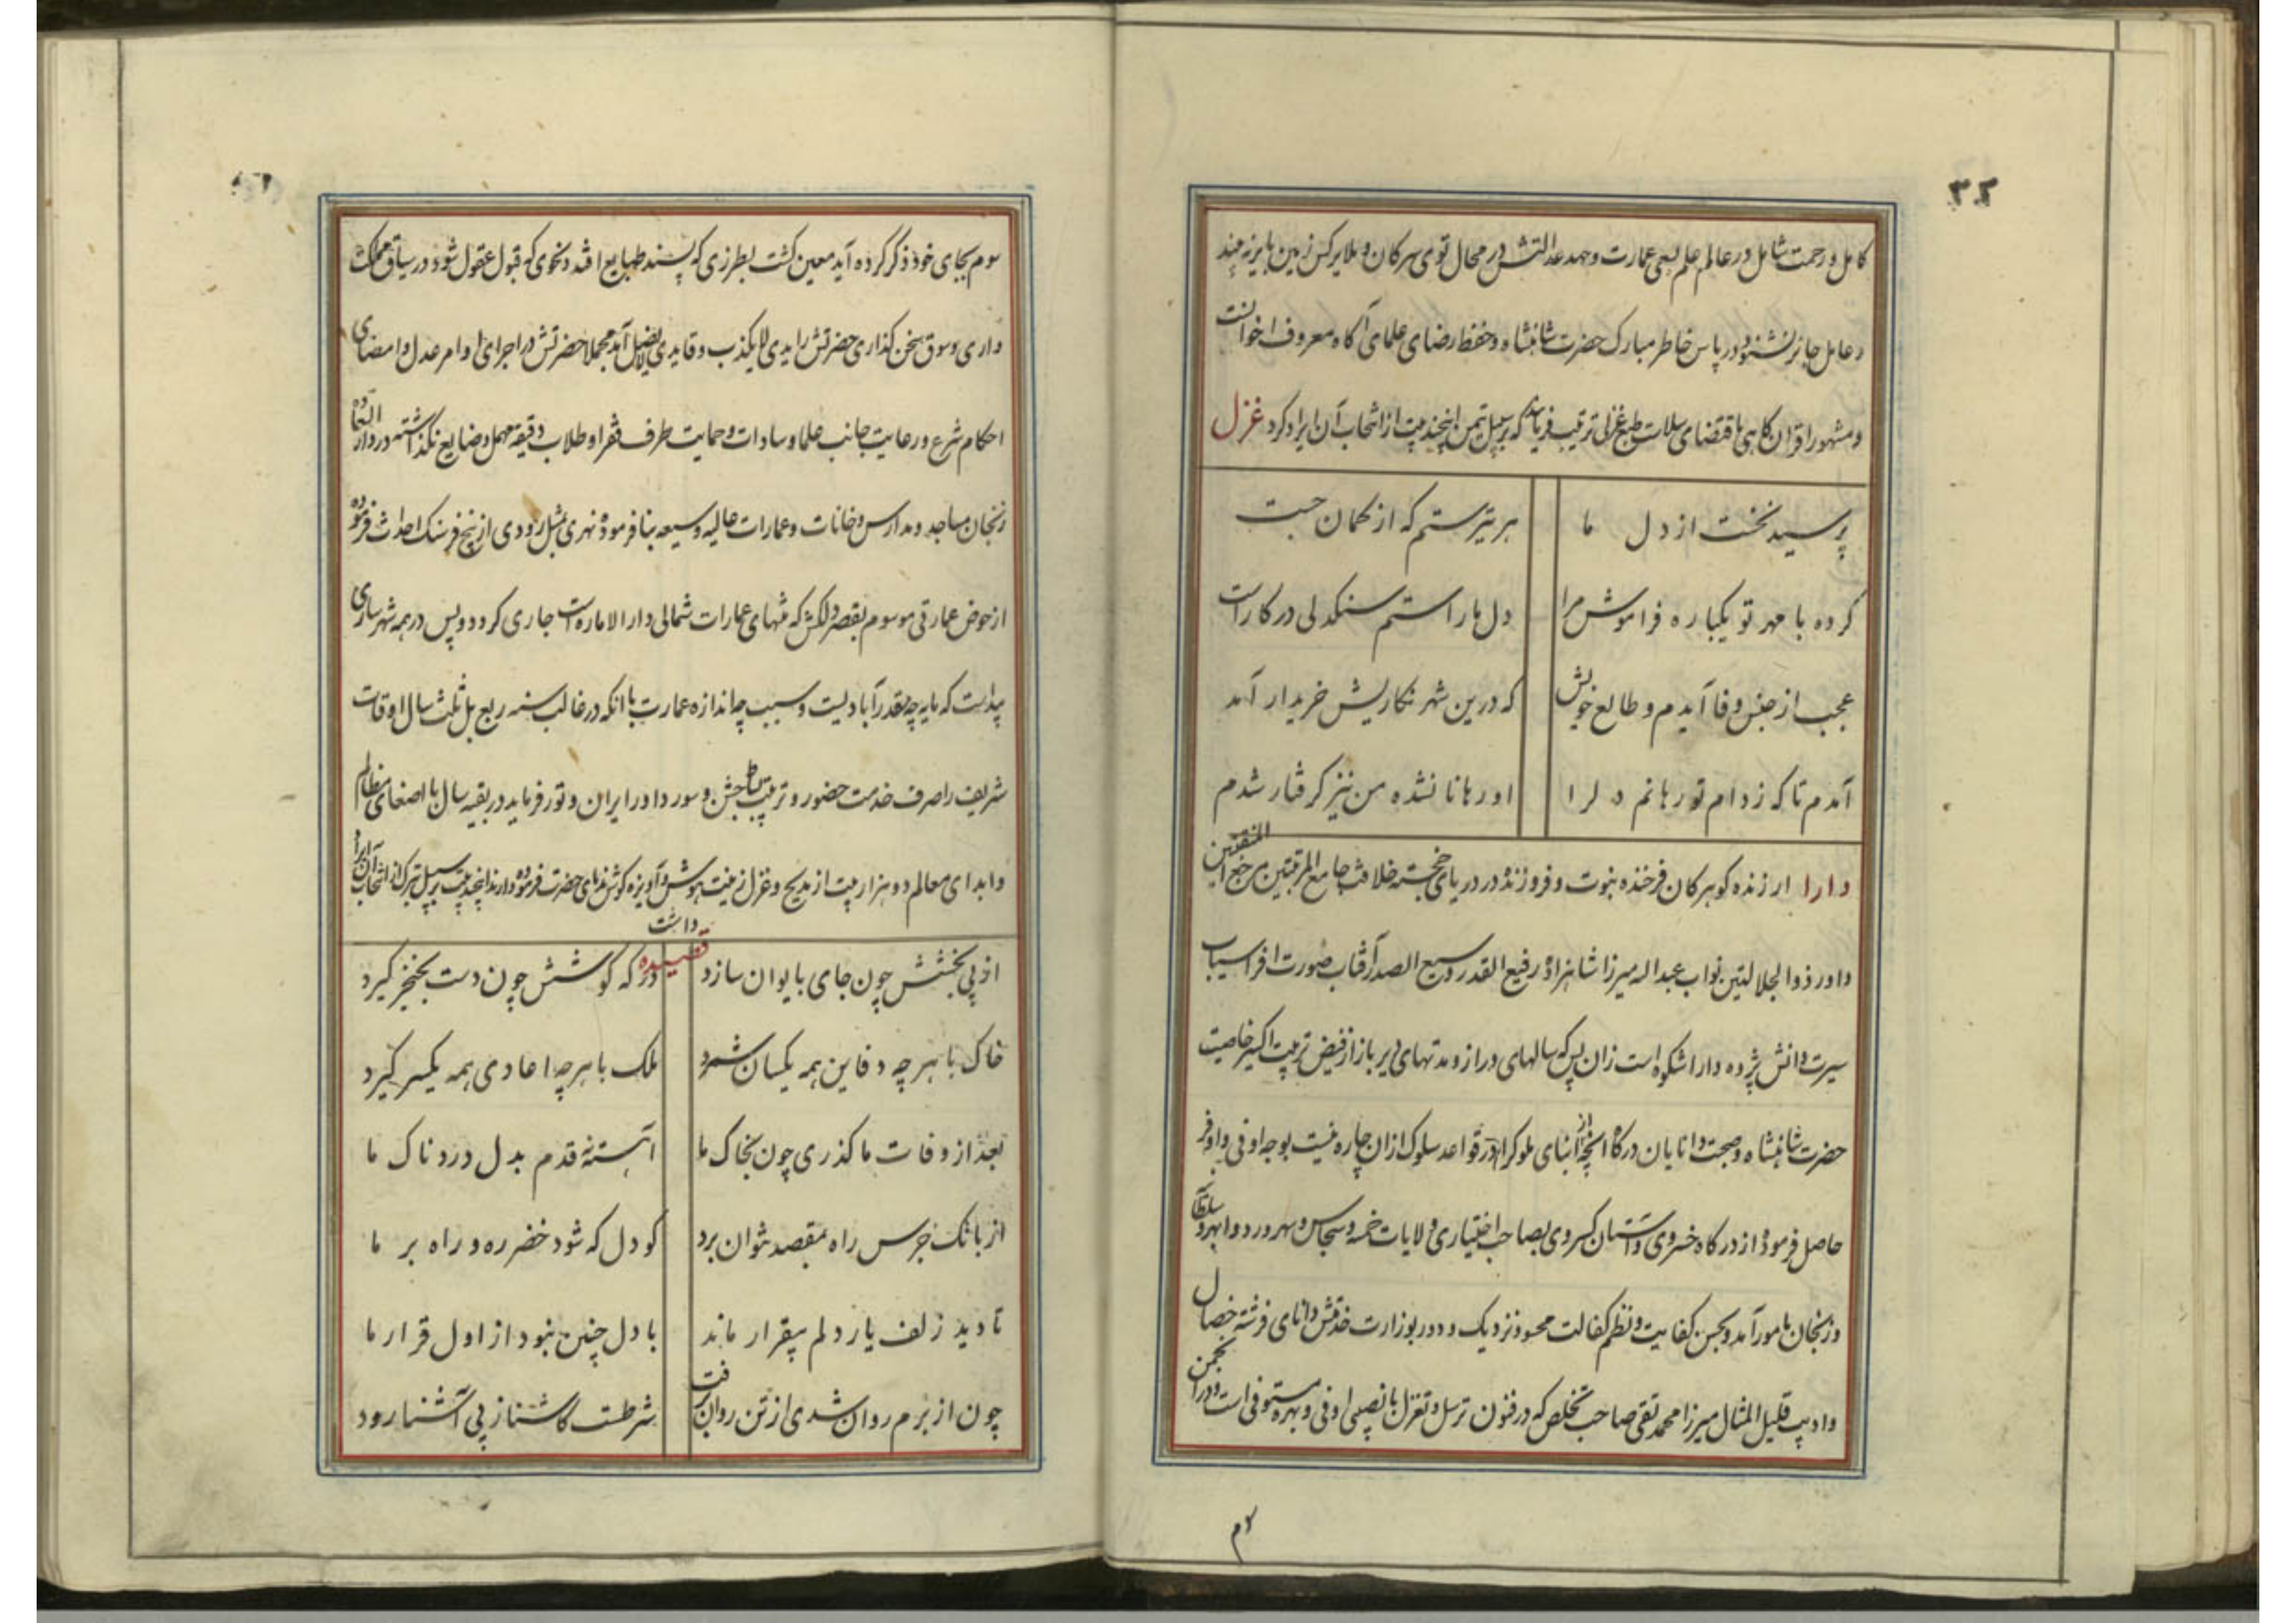 ۳۲
کامل و رحمت شامل در عالم علم لهی عمارت و جهد عدالتش در محال توی سرکان و ملایر کس زمین بایر نه بیند
و عامل جائر نشنود در پاس خاطر مبارک حضرت شاهنشاه و حفظ رضای علمای آگاه معروف اخوانست
و مشهور اقران گاهی باقتضای سلامت طبع غزلی ترتیب فرماید که بر سبیل تیمن اینچند بیت از انتخاب آن ایراد کرد غزل
هر تیر ستم که از کمان جست
پرسید نخست از دل ما
دل ما را ستم سنگدلی در کار است
کرده با مهر تو یکباره فراموش مرا
که درین شهر نگاریش خریدار آمد
عجب از جنس وفا آیدم و طالع خویش
او رها نا نشده من نیز گرفتار شدم
آمدم تا که ز دام تو رهانم دلرا
دارا ارزنده گوهر کان فرخنده نبوت و فروزنده در دریای خجسته خلافت جامع المرتبتین مرجع المنقبتین
داور ذوالجلالتین نواب عبداله میرزا شاهزاده رفیع القدر وسیع الصدر آفتاب صورت افراسیاب
سیرت دانش پژوه دارا شکوه است زان پس که سالهای دراز و مدتهای دیرباز از فیض تربیت اکسیر خاصیت
حضرت شاهنشاه و صحبت دانایان درگاه آنچه ابنای ملوک را از در قواعد سلوک ازان چاره نیست بوجه اوفی و اوفر
حاصل فرموده از درگاه خسروی و آستان کسروی بصاحب اختیاری ولایات خمسه و سجاس و سهرورد و ابهر و سلطانیه
و زنجان مامور آمد و بحسن کفایت و نظم کفالت محسود نزدیک و دور بوزارت خدمتش دانای فرشته خصال
و ادیب قلیل المثال میرزا محمد تقی صاحب تخلص که در فنون ترسل و تغزل با نصیبی اوفی و بهره مستوفی است و در انجمن
سوم بجای خود ذکر کرده آید معین گشت بطرزی که پسند طبایع افتد و نحوی که قبول عقول شود در سیاق مملکت
داری و سوق سخن گذاری حضرتش رایدی لایکذب و قایدی لایضل آمد مجملا حضرتش در اجرای اوامر عدل و امضای
احکام شرع و رعایت جانب علما و سادات و حمایت طرف فقرا و طلاب دقیقه مهمل و ضایع نگذاشته در دار السعاده
زنجان مساجد و مدارس و خانات و عمارات عالیه وسیعه بنا فرموده نهری مثل رودی از پنج فرسنگ احداث فرموده
از حوض عمارتی موسوم بقصر دلگش که منتهای عمارات شمالی دار الاماره است جاری گردد و پس در همه شهر ساری
پیداست که مایه چه مقدر آبادیست و سبب چه اندازه عمارت با آنکه در غالب سنه ربع بل ثلث سال اوقات
شریف را صرف خدمت حضور و ترتیب بساط جشن و سور داور ایران و تور فرماید در بقیه سال با اصغای مظالم
و ابدای معالم دو هزار بیت از مدیح و غزل زینت هوش و آویزه گوش ندمای حضرت فرموده دارند اینچند بیت بر سبیل تبرک از انتخاب آن ایراد
داشت
قصیده
از پی بخشش چون جای بایوان سازد
در گه کوشش چون دست بخنجر گیرد
خاک با هر چه دفاین همه یکسان شمرد
ملک با هر چه اعادی همه یکسر گیرد
بعد از وفات ما گذری چون بخاک ما
آهسته نه قدم بدل دردناک ما
از بانگ جرس راه بمقصد نتوان برد
کو دل که شود خضر ره و راهبر ما
تا دید زلف یار دلم بیقرار ماند
با دل چنین نبود از اول قرار ما
چون از برم روان شدی از تن روان برفت
شرطست کاشنا ز پی آشنا رود